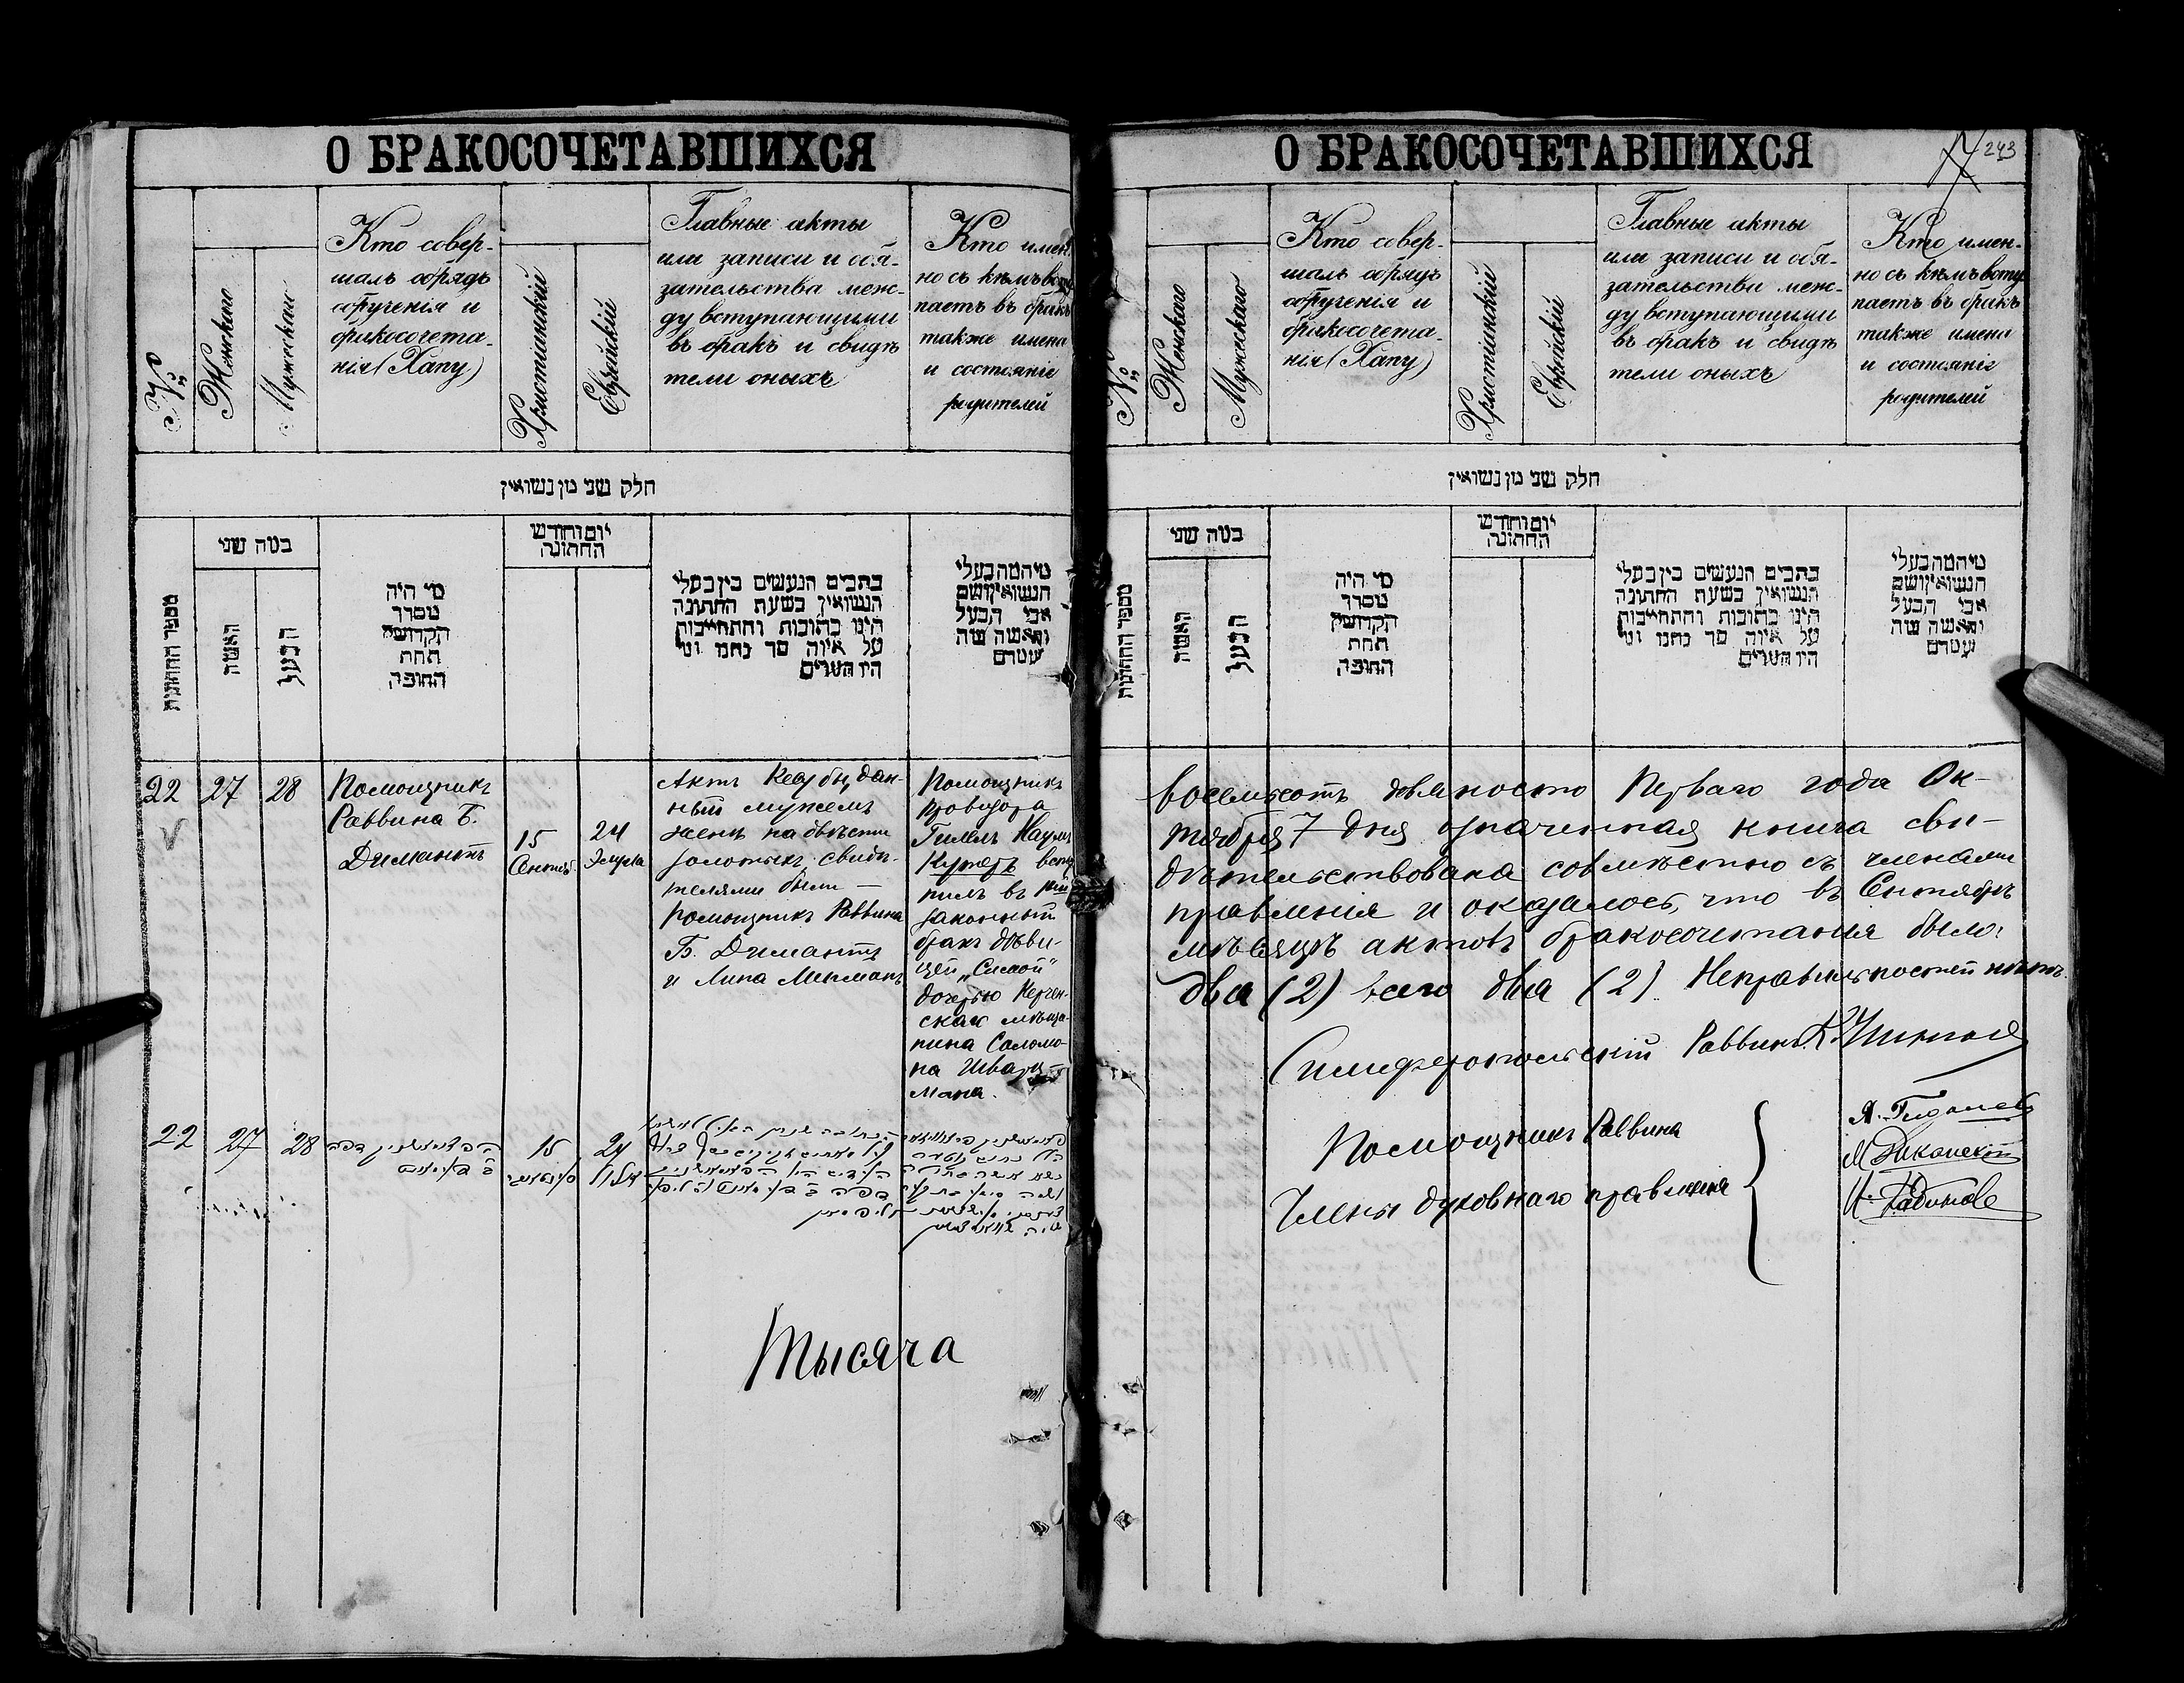 О БРАКОСОЧЕТАВШИХСЯ
№
Женскаго
Мужскаго
Кто совер-
шалъ обрядъ
обрученія и
бракосочета-
нія (Хапу)
Христіанскій
Еврейскій
Главные акты
или записи и обя-
зательства меж-
ду вступающими
въ бракъ и свидѣ
тели оныхъ
Кто имен
но съ кѣмъ всту
паетъ въ бракъ
также имена
и состояніе
родителей
חלק שני מן נשואין
מספר החתונות
כמה שני
האשה
הבעל
מי היה
מסדר
הקדושין
תחת
החופה
יום וחודש
החתונה
כתבים הנעשים בין בעלי
הנשואין בשעת החתונה
היינו כתובות והתחייבות
על איזה סך נתנו ומי
היו העדים
מי המה בעלי
הנשואין ושם
אבי הבעל
והאשה ומה
עמדם
22 27 28
Помощникъ
Раввина Б.
Димантъ
15
Сентяб.
24
Элула
Актъ Кесубы, дан-
ный мужемъ
женѣ на двѣсти
золотыхъ. свидѣ-
телями были —
помощникъ Раввина
Б. Димантъ
и Липа Мерманъ
Помощникъ
провизора
Гилель Наумъ
вступ
пилъ въ 1й
законный
бракъ дѣви-
цей „Симой"
дочерью Керчен-
скаго мѣща-
нина Соломо-
на Шварц-
мана.
22 27 28
15
24
אלול
Тысяча
О БРАКОСОЧЕТАВШИХСЯ
243
№
Женскаго
Мужскаго
Кто совер-
шалъ обрядъ
обрученія и
бракосочета-
нія (Хапу)
Христіанскій
Еврейскій
Главные акты
или записи и обя-
зательства меж-
ду вступающими
въ бракъ и свидѣ
тели оныхъ
Кто имен-
но съ кѣмъ всту
паетъ въ бракъ
также имена
и состояніе
родителей
חלק שני מן נשואין
מספר החתונות
כמה שני
האשה
הבעל
מי היה
מסדר
הקדושין
תחת
החופה
יום וחודש
החתונה
כתבים הנעשים בין בעלי
הנשואין בשעת החתונה
היינו כתובות והתחייבות
על איזה סך נתנו ומי
היו העדים
מי המה בעלי
הנשואין ושם
אבי הבעל
והאשה ומה
עמדם
восемьсотъ девяносто Перваго года Ок-
тября 7 дня означенная книга сви-
дѣтельствована совмѣстно съ членами
правленія и оказалось, что въ Сентябрѣ
мѣсяцѣ актовъ бракосочетанія было:
два (2) всего два (2). Неправильностей нѣтъ.
Симферопольскій Раввинъ
Помощникъ Раввина
Члены духовнаго правленія